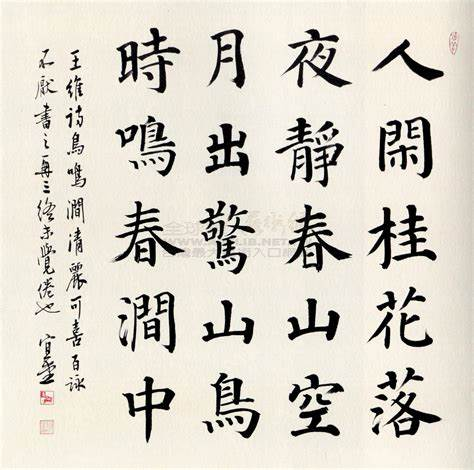 人閑桂花落
夜靜春山空
月出驚山鳥
時鳴春澗中
王維詩鳥鳴澗清麗可喜百詠
不厭書之再三終未覺倦也